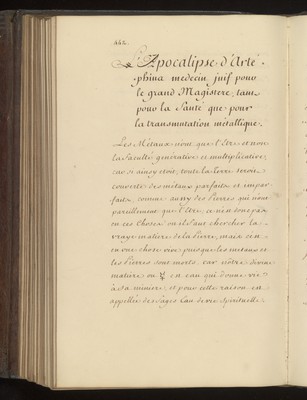 442.
L'Apocalipse d'Arté
phina medecin juif pour
le grand Magistere, tant
pour la Santé que pour
la transmutation métallique.
Les Métaux n'ont que l'Etre et non
la faculté generative et multiplicative,
car si ainsy etoit, toute la Terre seroit
convertie des métaux parfaits et impar-
faits, comme aussy des Pierres qui n'ont
pareillement que l'Etre, ce n'est donc pas
en ces choses ou il faut chercher la
vraye matiere de la Pierre, mais c'en
en une chose vive puisque les metaux et
les Pierres sont morts, car nôtre divine
matiere ou ☿ en eau qui donne vie
à sa miniere, et pour cette raison est
appellée des Sages Eau de vie Spirituelle